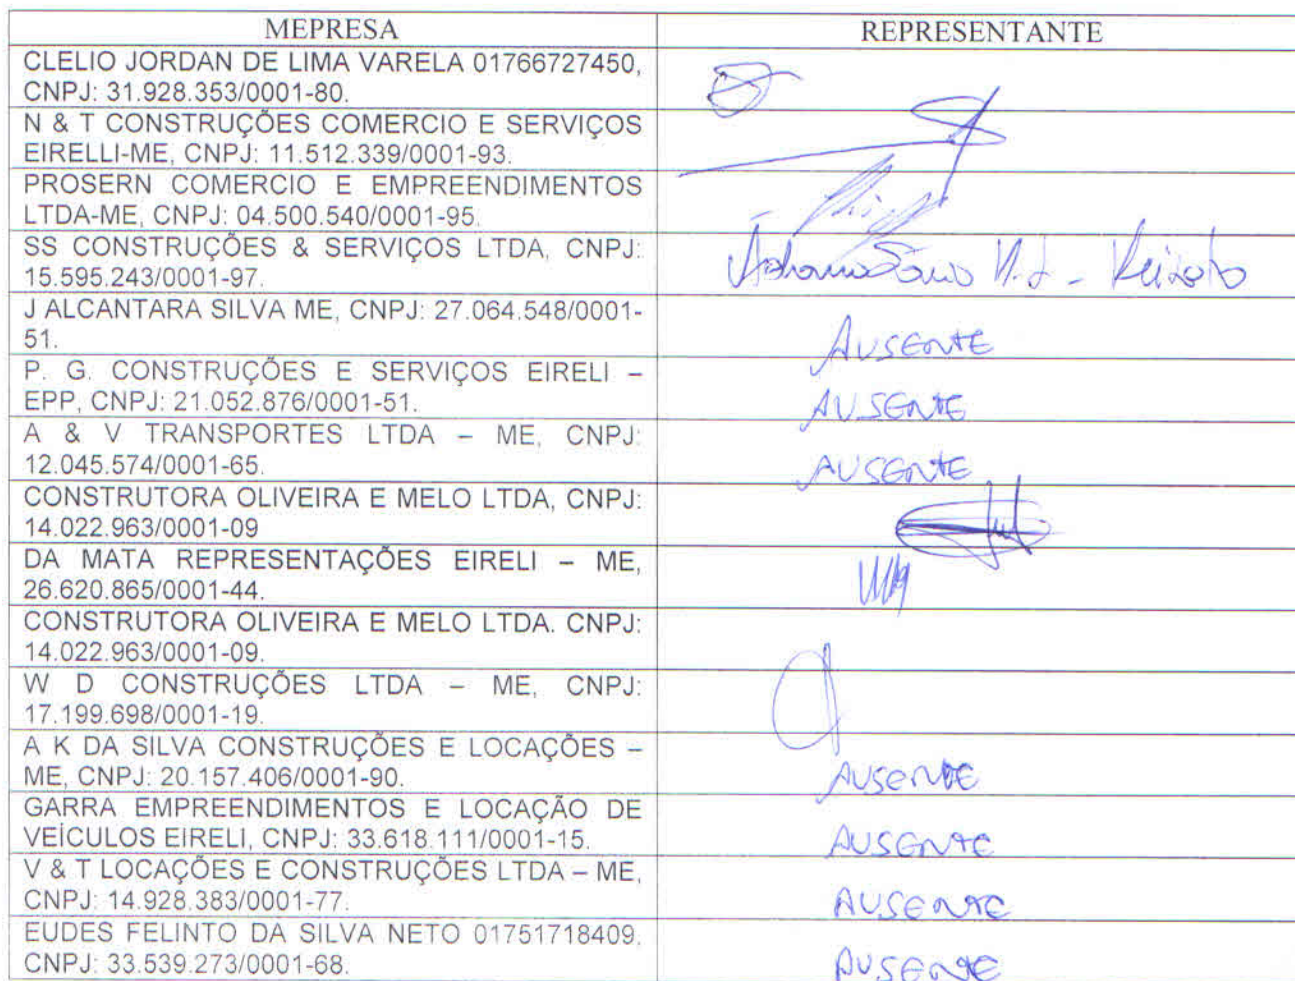 MEPRESA REPRESENTANTE
CLELIO JORDAN DE LIMA VARELA 01766727450,
CNPJ: 31.928.353/0001-80.
N & T CONSTRUÇÕES COMERCIO E SERVIÇOS
EIRELLI-ME, CNPJ: 11.512.339/0001-93.
PROSERN COMERCIO E EMPREENDIMENTOS
LTDA-ME, CNPJ: 04.500.540/0001-95.
SS CONSTRUÇÕES & SERVIÇOS LTDA, CNPJ:
15.595.243/0001-97.
J ALCANTARA SILVA ME, CNPJ: 27.064.548/0001-
51.
AUSENTE
P. G. CONSTRUÇÕES E SERVIÇOS EIRELI –
EPP, CNPJ: 21.052.876/0001-51.
AUSENTE
A & V TRANSPORTES LTDA – ME, CNPJ:
12.045.574/0001-65.
AUSENTE
CONSTRUTORA OLIVEIRA E MELO LTDA, CNPJ:
14.022.963/0001-09
DA MATA REPRESENTAÇÕES EIRELI – ME,
26.620.865/0001-44.
CONSTRUTORA OLIVEIRA E MELO LTDA. CNPJ:
14.022.963/0001-09.
W D CONSTRUÇÕES LTDA – ME, CNPJ:
17.199.698/0001-19.
A K DA SILVA CONSTRUÇÕES E LOCAÇÕES –
ME, CNPJ: 20.157.406/0001-90.
AUSENTE
GARRA EMPREENDIMENTOS E LOCAÇÃO DE
VEÍCULOS EIRELI, CNPJ: 33.618.111/0001-15.
AUSENTE
V & T LOCAÇÕES E CONSTRUÇÕES LTDA – ME,
CNPJ: 14.928.383/0001-77.
AUSENTE
EUDES FELINTO DA SILVA NETO 01751718409.
CNPJ: 33.539.273/0001-68.
AUSENTE